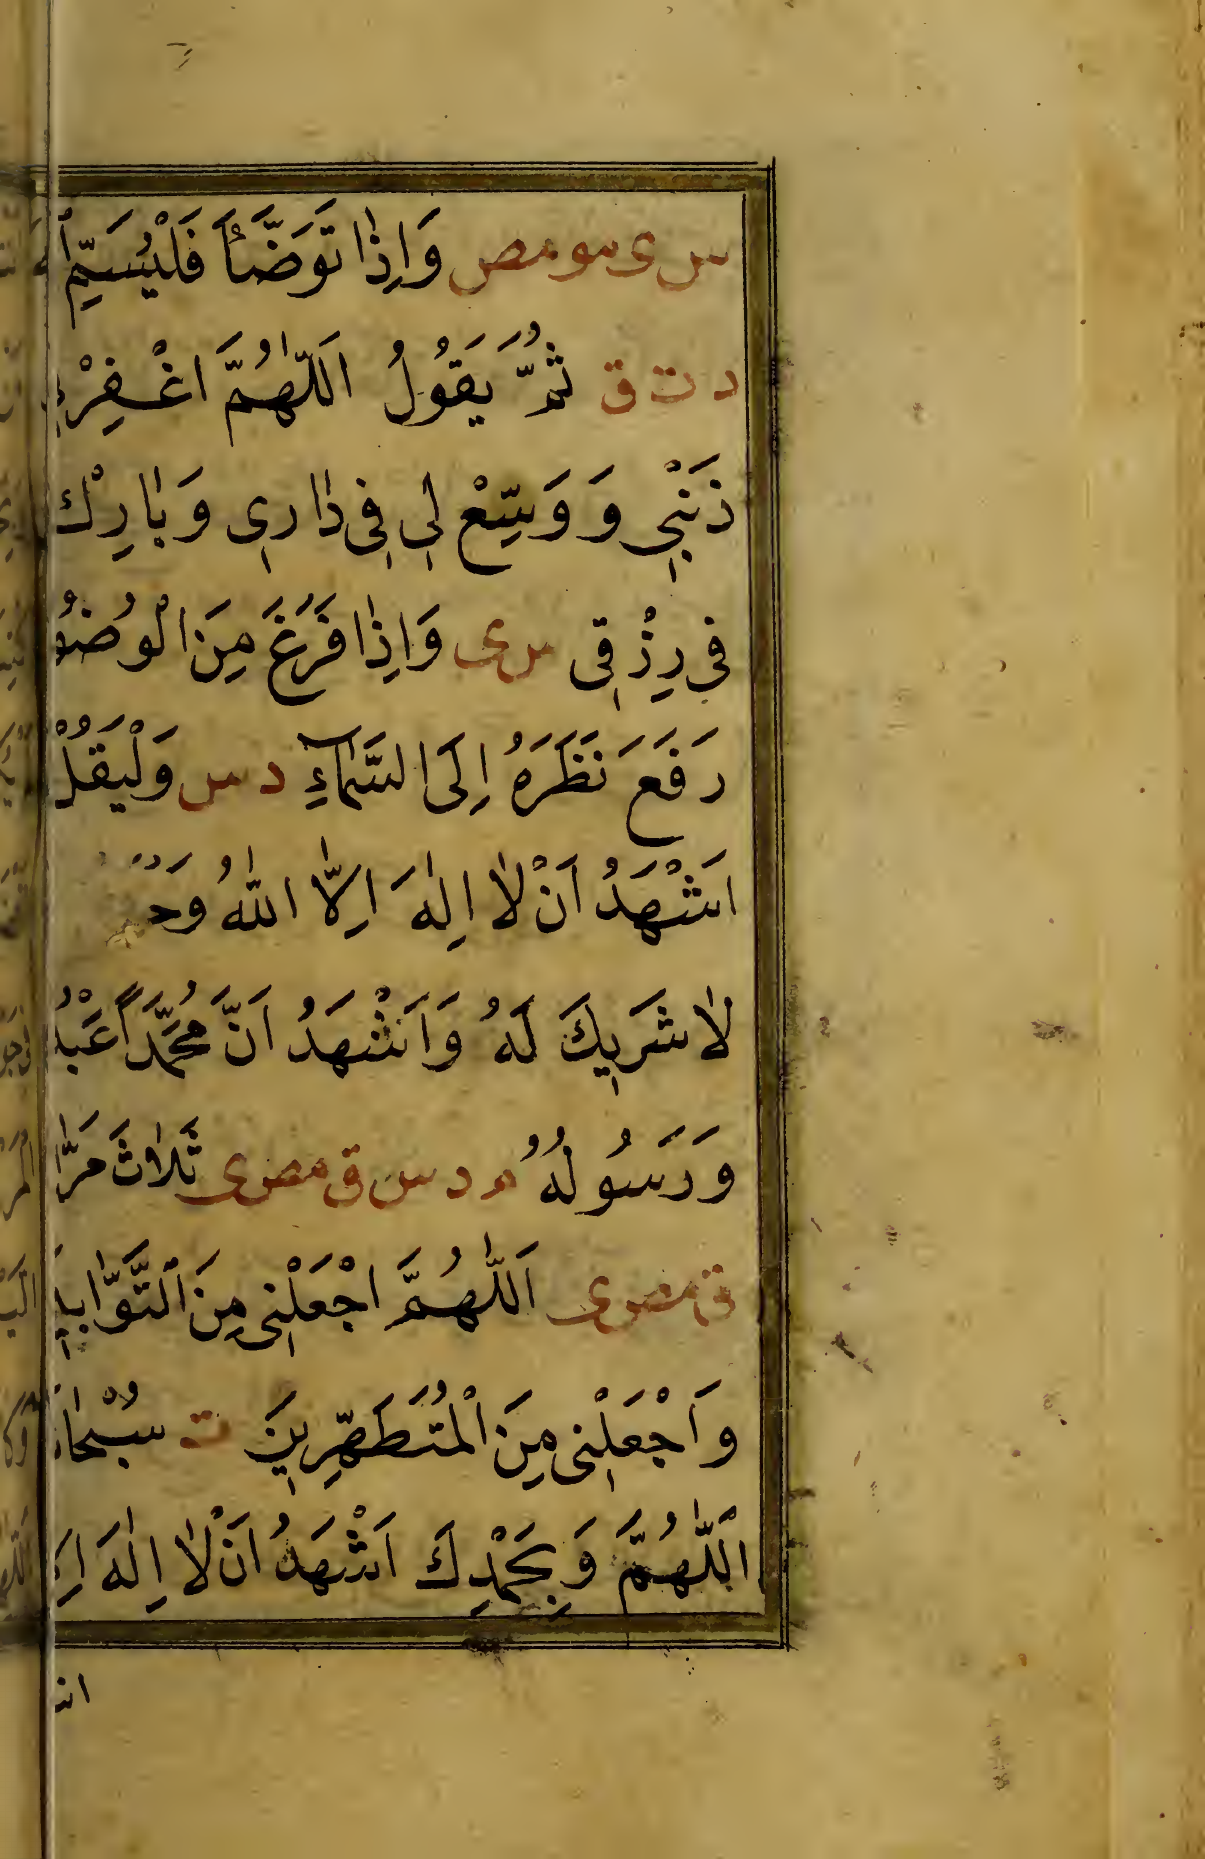 س ى مو مص وَاِذٰا تَوَضَّأَ فَلْيُسَمِّ
د ت ق ثُمَّ يَقُولُ اَللّٰهُمَّ اغْفِرْ
ذَنْبِي وَ وَسِّعْ لِي فِي دٰارِي وَبٰارِكْ
فِي رِزْقِي س ى وَاِذٰا فَرَغَ مِنَ الْوُضُو
رَفَعَ نَظَرَهُ اِلَى السَّمٰاءِ د س وَلْيَقُلْ
اَشْهَدُ اَنْ لٰا اِلٰهَ اِلَّا اللّٰهُ وَحْ
لٰا شَرِيكَ لَهُ وَاَشْهَدُ اَنَّ مُحَمَّدًا عَبْدُ
وَرَسُولُهُ م د س ق مص ى ثَلٰاثَ مَرّٰا
ق مص ى اَللّٰهُمَّ اجْعَلْنِي مِنَ التَّوّٰابِي
وَاجْعَلْنِي مِنَ الْمُتَطَهِّرِينَ ت سُبْحٰانَ
اَللّٰهُمَّ وَبِحَمْدِكَ اَشْهَدُ اَنْ لٰا اِلٰهَ اِ
انت